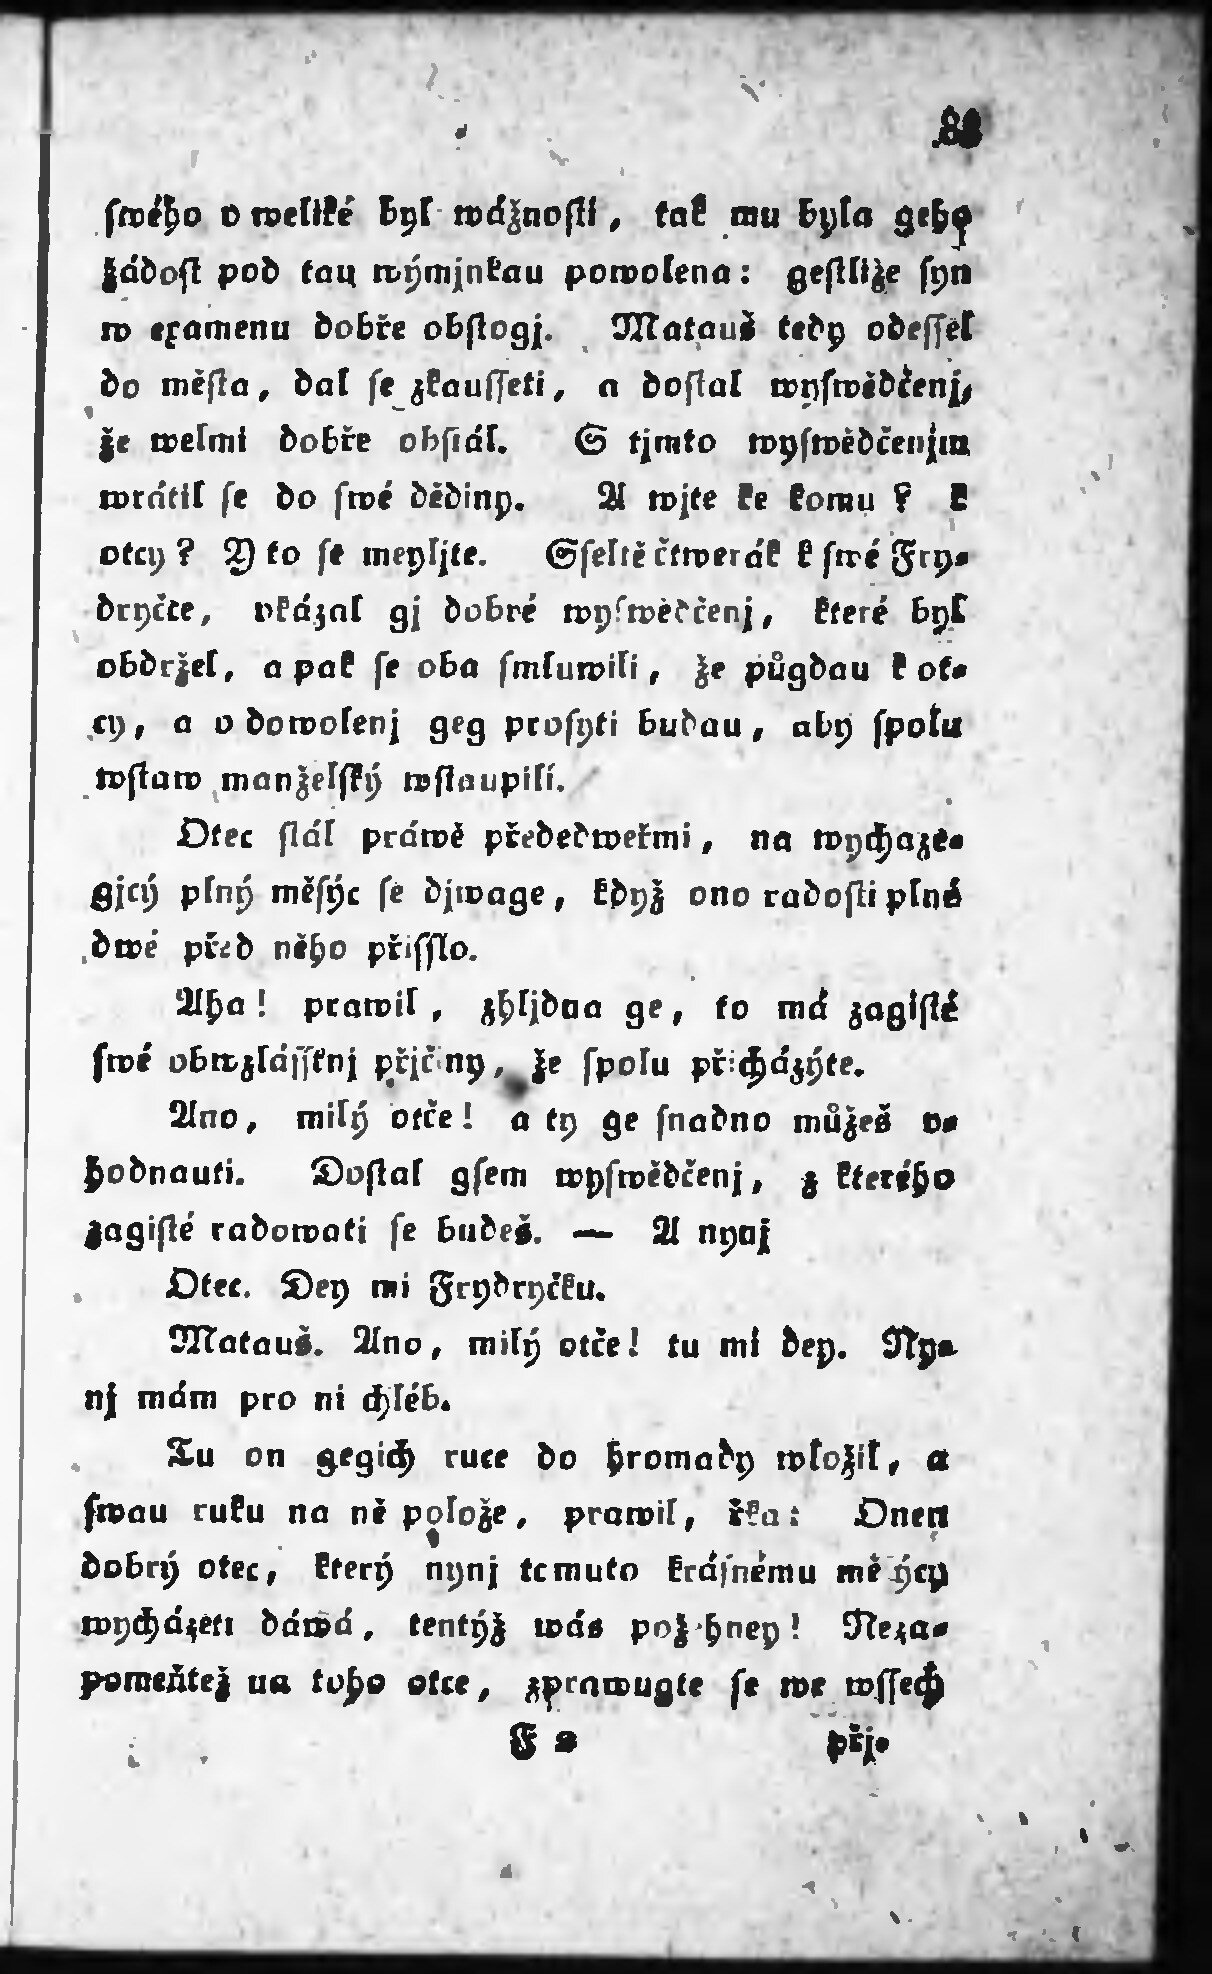 ſwého v weliké byl wážnoſti, tak mu byla geho
žádoſt pod tau wýmjnkau powolena: geſtliže ſyn
w examenu dobře obſtogj. Matauš tedy odeſſel
do měſta, dal ſe zkauſſeti, a doſtal wyſwědčenj,
že welmi dobře obſtál. S tjmto wyſwědčenjm
wrátil ſe do ſwé dědiny. A wjte ke komu? K
otcy? Y to ſe meyljte. Sſeltě čtwerák k ſwé Fry-
dryčce, vkázal gj dobré wyſwědčenj, které byl
obdržel, a pak ſe oba ſmluwili, že půgdau k ot-
cy, a o dowolenj geg proſyti budau, aby ſpolu
wſtaw manželſký wſtaupili.
Otec ſtál práwě předeďweřmi, na wychaze-
gjcý plný měſýc ſe djwage, když ono radoſti plné
dwé před něho přiſſlo.
Aha! prawil, zhljdna ge, to má zagiſté
ſwé obwzláſſtnj přjčiny, že ſpolu přicházýte.
Ano, milý otče! a ty ge ſnadno můžeš v-
hodnauti. Doſtal gſem wyſwědčenj, z kterého
zagiſté radowati ſe budeš. — A nynj
Otec. Dey mi Frydryčku.
Matauš. Ano, milý otče! tu mi dey. Ny-
nj mám pro ni chléb.
Tu on gegich ruce do hromady wložil, a
ſwau ruku na ně polože, prawil, řka: Onen
dobrý otec, který nynj tomuto kráſnému měſýcy
wycházeti dáwá, tentýž wás požehney! Neza-
pomeňtež na toho otce, zprawugte ſe we wſſech
F 2 přj-